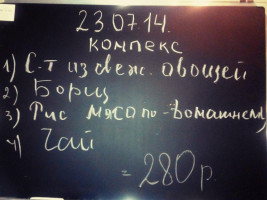 23.07.14.
компекс
1) С.т из свеж. овощей
2) Борщ
3) Рис мясо по-домашнему
4) Чай
= 280 р.